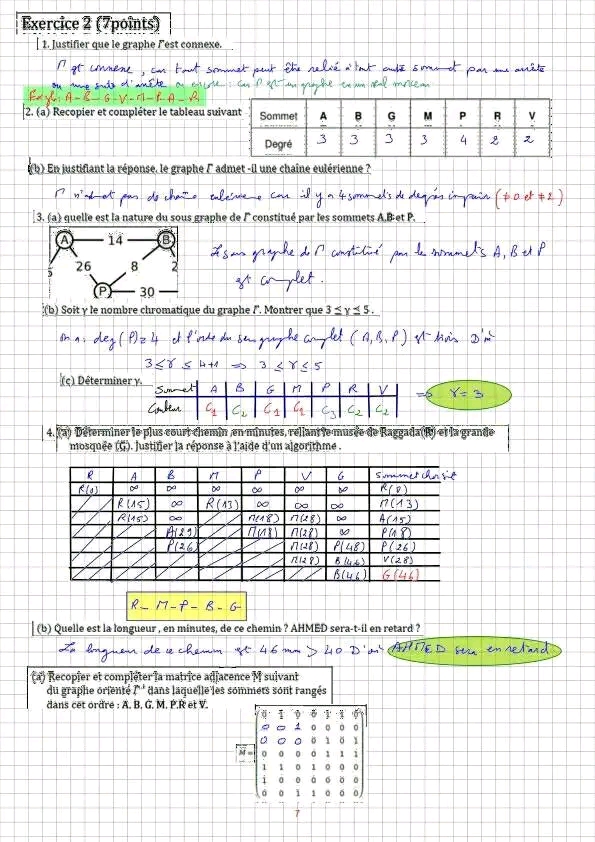 Exercice 2 (7points)
1. Justifier que le graphe Γ est connexe.
Γ est connexe, car tout sommet peut être relié à tout autre sommet par une arête
ou une suite d'arêtes ou encore : car Γ est un graphe en un seul morceau
A - B - G - V - M - P - A - R
2. (a) Recopier et compléter le tableau suivant
Sommet A B G M P R V
Degré 3 3 3 3 4 2 2
(b) En justifiant la réponse, le graphe Γ admet -il une chaîne eulérienne ?
Γ n'admet pas de chaîne eulérienne car il y a 4 sommets de degrés impairs (≠ 0 et ≠ 2)
3. (a) quelle est la nature du sous graphe de Γ constitué par les sommets A,B et P.
A 14 B
5 26 8 2
P 30
Le sous graphe de Γ constitué par les sommets A, B et P
est complet.
(b) Soit γ le nombre chromatique du graphe Γ. Montrer que 3 ≤ γ ≤ 5 .
on a : deg(P) = 4 et l'ordre du sous graphe complet (A, B, P) est trois D'où
3 ≤ γ ≤ 4+1 ⇒ 3 ≤ γ ≤ 5
(c) Déterminer γ.
Sommet A B G M P R V
Couleur C1 C2 C1 C1 C3 C2 C2
⇒ γ = 3
4. (a) Déterminer le plus court chemin ,en minutes, reliant le musée de Raggada(R) et la grande
mosquée (G). Justifier la réponse à l'aide d'un algorithme .
R A B M P V G Sommet choisit
R(0) ∞ ∞ ∞ ∞ ∞ ∞ R(8)
R(15) ∞ R(13) ∞ ∞ ∞ M(13)
R(15) ∞ M(18) M(28) ∞ A(15)
A(29) M(18) M(28) ∞ P(18)
P(26) M(28) P(48) P(26)
M(28) B(46) V(28)
B(46) G(46)
R - M - P - B - G
(b) Quelle est la longueur , en minutes, de ce chemin ? AHMED sera-t-il en retard ?
La longueur de ce chemin est 46 mn > 40 D'où AHMED sera en retard
(a) Recopier et compléter la matrice adjacence M suivant
du graphe orienté Γ' dans laquelle les sommets sont rangés
dans cet ordre : A, B, G, M, P,R et V.
0 1 0 0 1 1 0
0 0 1 0 0 0 0
0 0 0 0 1 0 1
M = 0 0 0 0 1 1 1
1 1 0 1 0 0 0
1 0 0 0 0 0 0
0 0 1 1 0 0 0
7